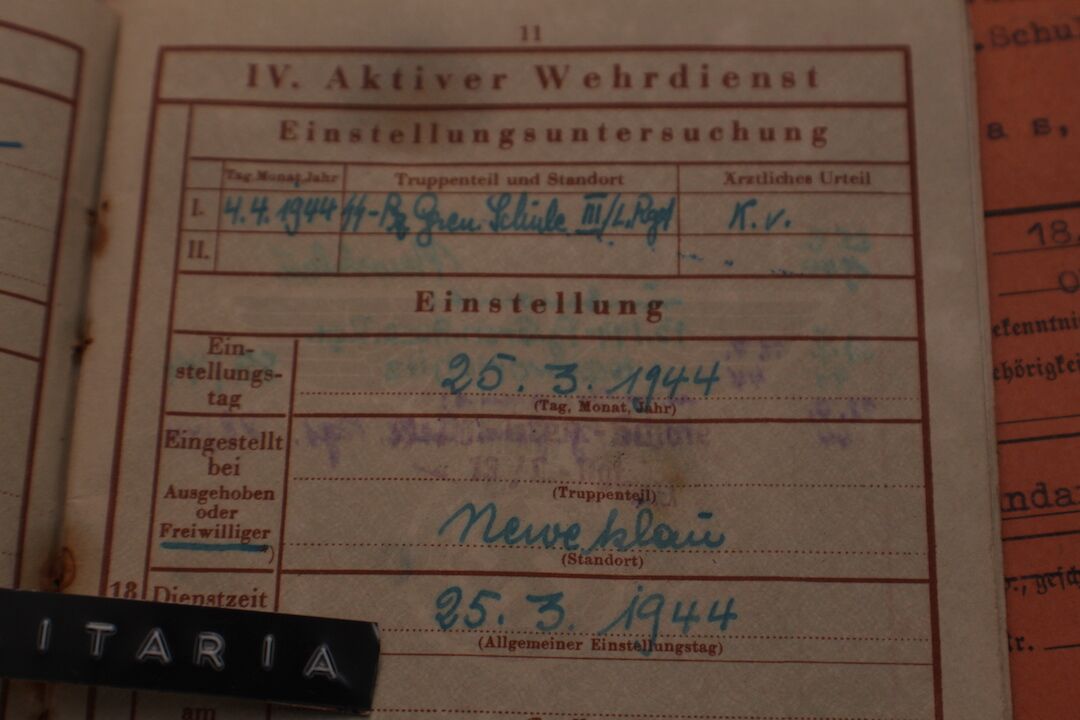 11
IV. Aktiver Wehrdienst
Einstellungsuntersuchung
Tag, Monat, Jahr Truppenteil und Standort Ärztliches Urteil
I. 4.4.1944 SS-Pz Gren Schule III/L. Regt K.v.
II.
Einstellung
Ein-
stellungs-
tag
25. 3. 1944
(Tag, Monat, Jahr)
Eingestellt
bei
Ausgehoben
oder
Freiwilliger
)
(Truppenteil)
Neweklau
(Standort)
18 Dienstzeit
25. 3. 1944
(Allgemeiner Einstellungstag)
am
ITARIA
.Schul
a s,
18.
ekenntni
ehörigkei
ndar
, gesch
r.